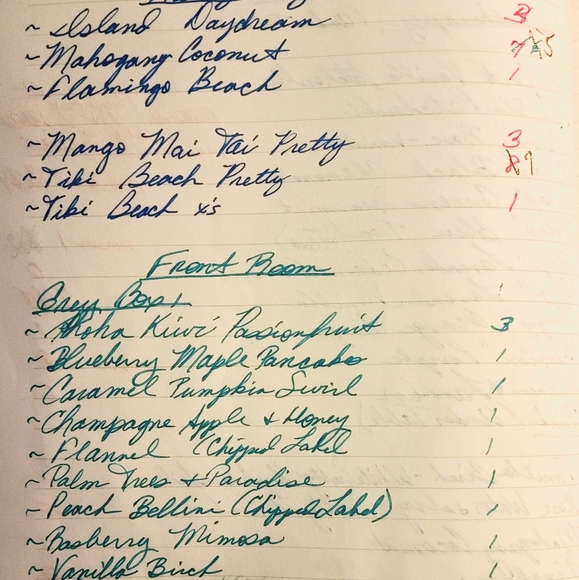 ~ Island Daydream 3
~ Mahogany Coconut 5
~ Flamingo Beach 1
~ Mango Mai Tai Pretty 3
~ Tiki Beach Pretty 7
~ Tiki Beach x's 1
Front Room
Grey Box 1
~ Aloha Kiwi Passionfruit 3
~ Blueberry Maple Pancake 1
~ Caramel Pumpkin Swirl 1
~ Champagne Apple & Honey 1
~ Flannel (Chipped Label 1
~ Palm Trees & Paradise 1
~ Peach Bellini (Chipped Label) 1
~ Rasberry Mimosa 1
~ Vanilla Birch 1